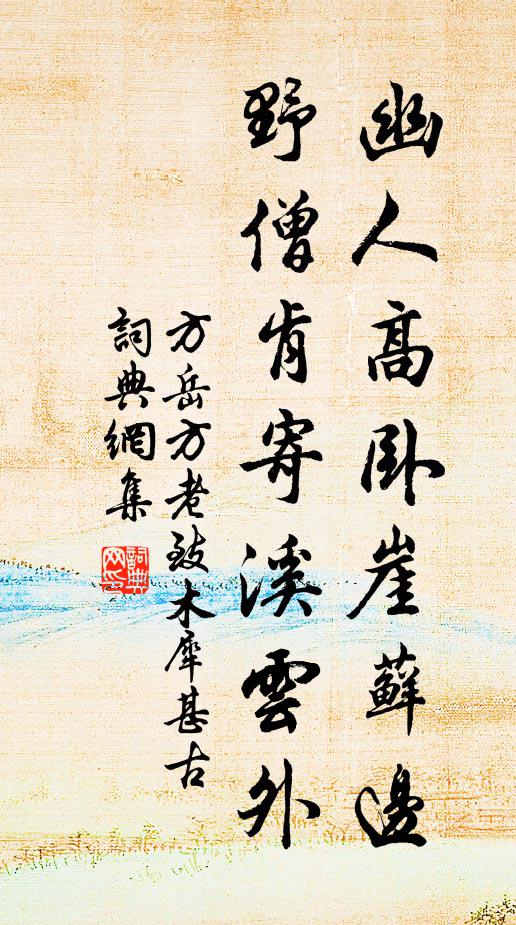 幽人高卧崖蘚邊
野僧肯寄溪雲外
方岳方老致木犀甚古
詞典網集